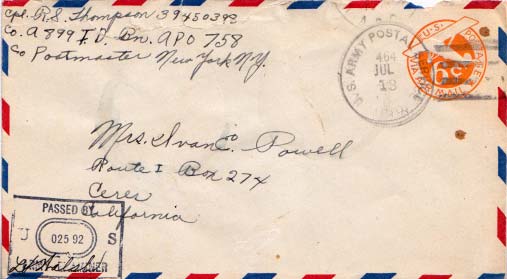 Cpl. R.S. Thompson 39450393
Co. A 899 T.D. Bn. APO 758
℅ Postmaster New York N.Y.
U.S. ARMY POSTAL SERVICE
464
JUL
13
U.S. POSTAGE
6c
VIA AIR MAIL
Mrs. Ivan C. Powell
Route 1 Box 274
Ceres
California
PASSED BY
U 02592 S
ARMY EXAMINER